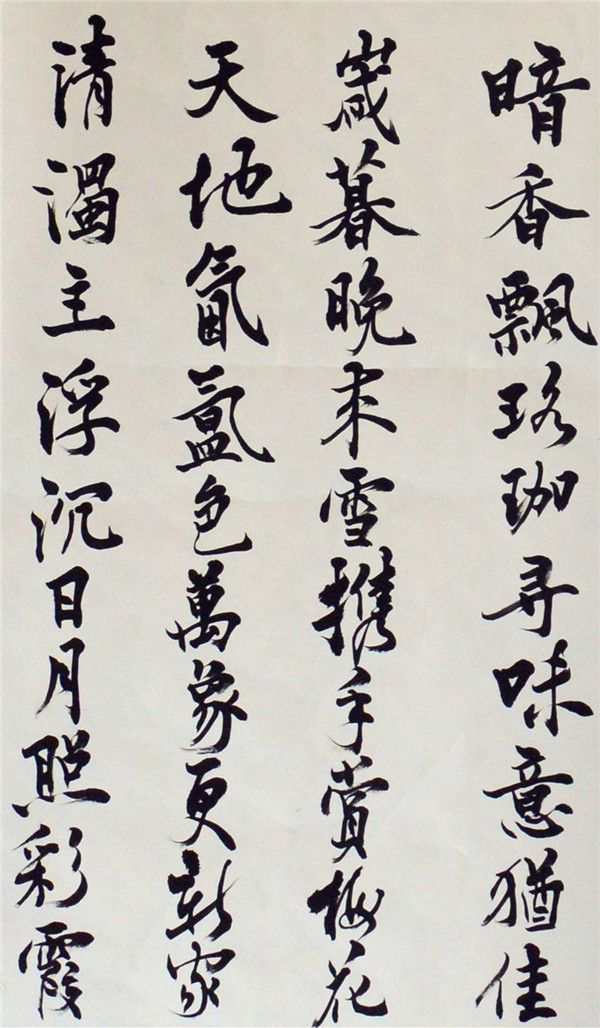 暗香飄珞珈尋味意猶佳
歲暮晚來雪攜手賞梅花
天地氤氳色萬象更新家
清濁主浮沉日月照彩霞